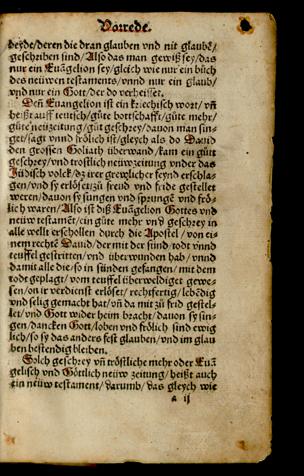 Vorrede.
beyde/deren die dran glauben vnd nit glaubē/
geschriben sind/Also das man gewiß sey/das
nur ein Euāgelion sey/gleich wie nur ein bůch
des newen testaments/vnnd nur ein glaub/
vnd nur ein Gott/der do verheisset.
Deñ Euangelion ist ein kriechisch wort/vñ
heißt auff teutsch/gůte bottschafft/gůte mehr/
gůte neüzeitung/gůt geschrey/dauon man sin-
get/sagt vnnd frölich ist/gleych als do Dauid
den grossen Goliath überwand/kam ein gůtt
geschrey/vnd trostlich neüwzeitung vnder das
Jüdisch volck/dz irer grewlicher feynd erschla-
gen/vnd sy erlöset/zů freud vnd fride gestellet
weren/dauon sy sungen vnd sprungē vnd frö-
lich waren/Also ist diß Euāgelion Gottes vnd
neüw testamēt/ein gůte mehr vñ geschrey in
alle wellt erschollen durch die Apostel/von ei-
nem rechtē Dauid/der mit der sünd/todt vnnd
teuffel gestritten/vnd überwunden hab/vnnd
damit alle die/so in sünden gefangen/mit dem
todt geplagt/vom teuffel überweldiget gewe-
sen/on ir verdienst erlöset/rechtfertig/lebēdig
vnd selig gemacht hat/vñ da mit zů frid gestel-
let/vnd Gott wider heim bracht/dauon sy sin-
gen/dancken Gott/loben vnd frölich sind ewig
lich/so sy das anders fest glauben/vnd im glau
ben bestendig bleiben.
Solch geschrey vñ tröstliche mehr oder Euā
gelisch vnd Göttlich neüw zeitung/heißt auch
ein neüw testament/darumb/das gleych wie
a ij